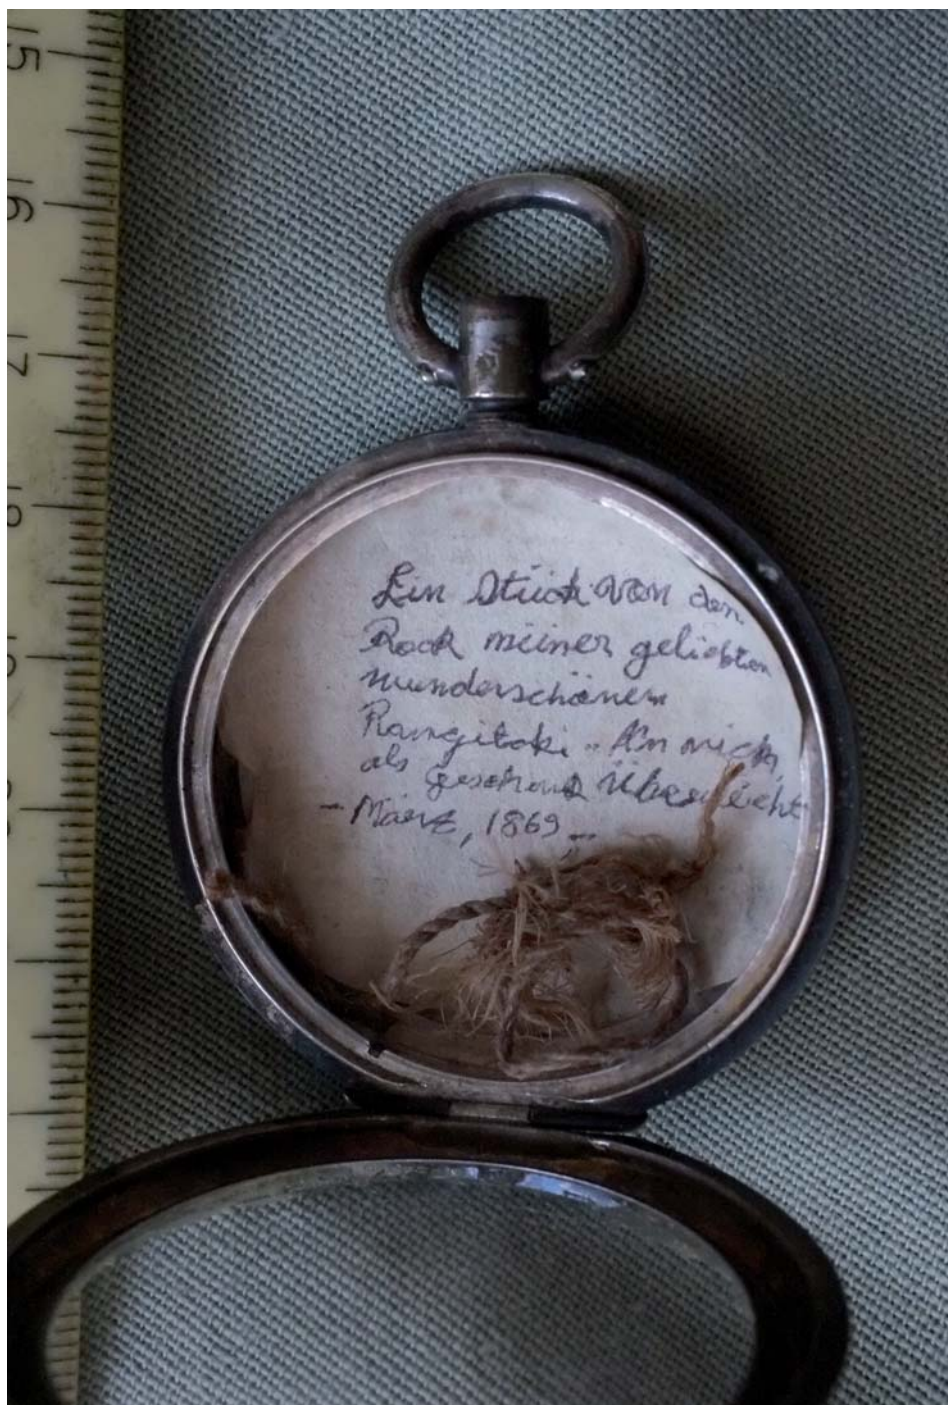 15
16
17
18
Ein Stück von dem
Rock meiner geliebten
wunderschönen
Rangitoki. An mich,
als Geschenk überreicht
- März, 1869 -